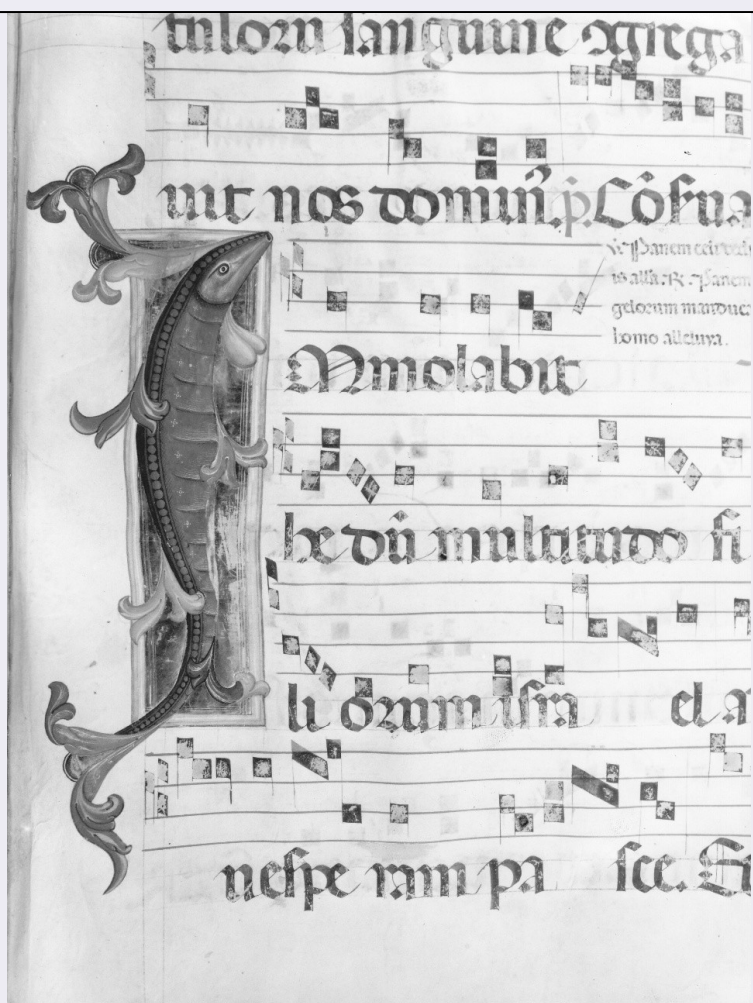 tulorum sanguine ɔgrega
uit nos dominus. p̄. Cōserua
℣. Panem celi dedi
is alla. ℟. Panem
gelorum manduca
homo alleluya.
IMmolabit
he dū multitudo fi
li orum isra el a
uespe ram pa sce. Et